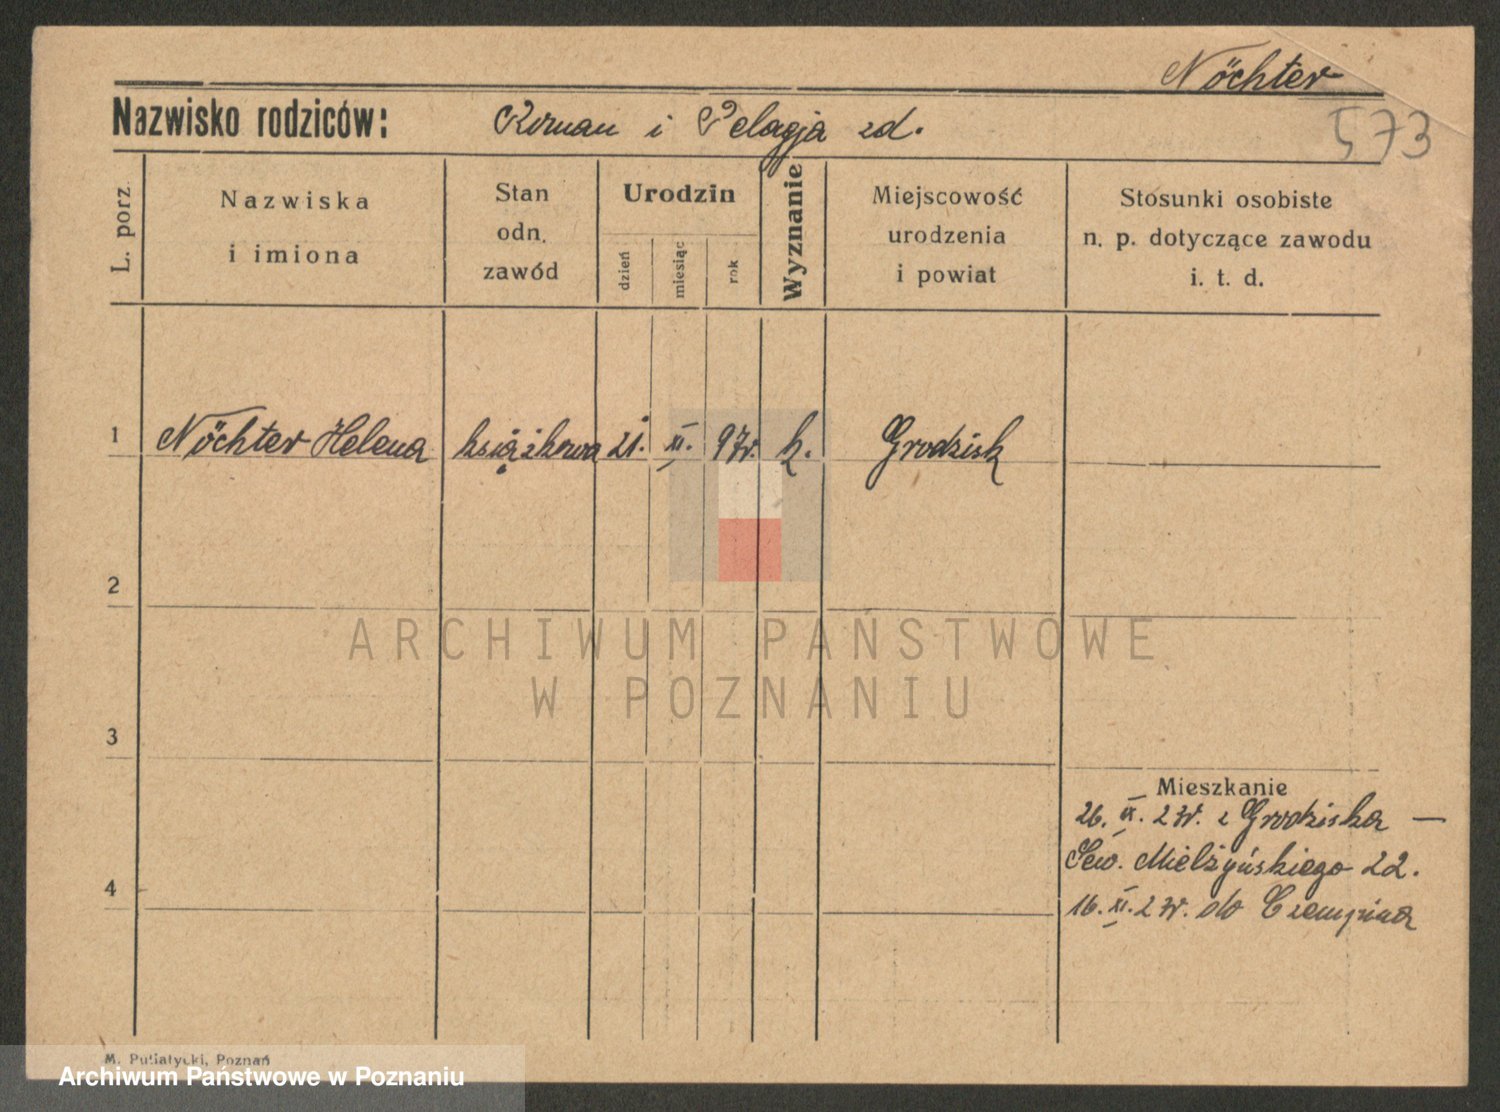 Nöchter
Nazwisko rodziców: Roman i Pelagja zd.
573
L. porz.
Nazwiska
i imiona
Stan
odn.
zawód
Urodzin
dzień
miesiąc
rok
Wyznanie
Miejscowość
urodzenia
i powiat
Stosunki osobiste
n. p. dotyczące zawodu
i. t. d.
1 Nöchter Helena książkowa 21. XI. 97r. k. Grodzisk
2
ARCHIWUM PAŃSTWOWE
W POZNANIU
3
Mieszkanie
26. IX. 23r. z Grodziska —
Sew. Mielżyńskiego 22.
4
16. XI. 23r. do Czempinia
M. Putiatycki, Poznań
Archiwum Państwowe w Poznaniu